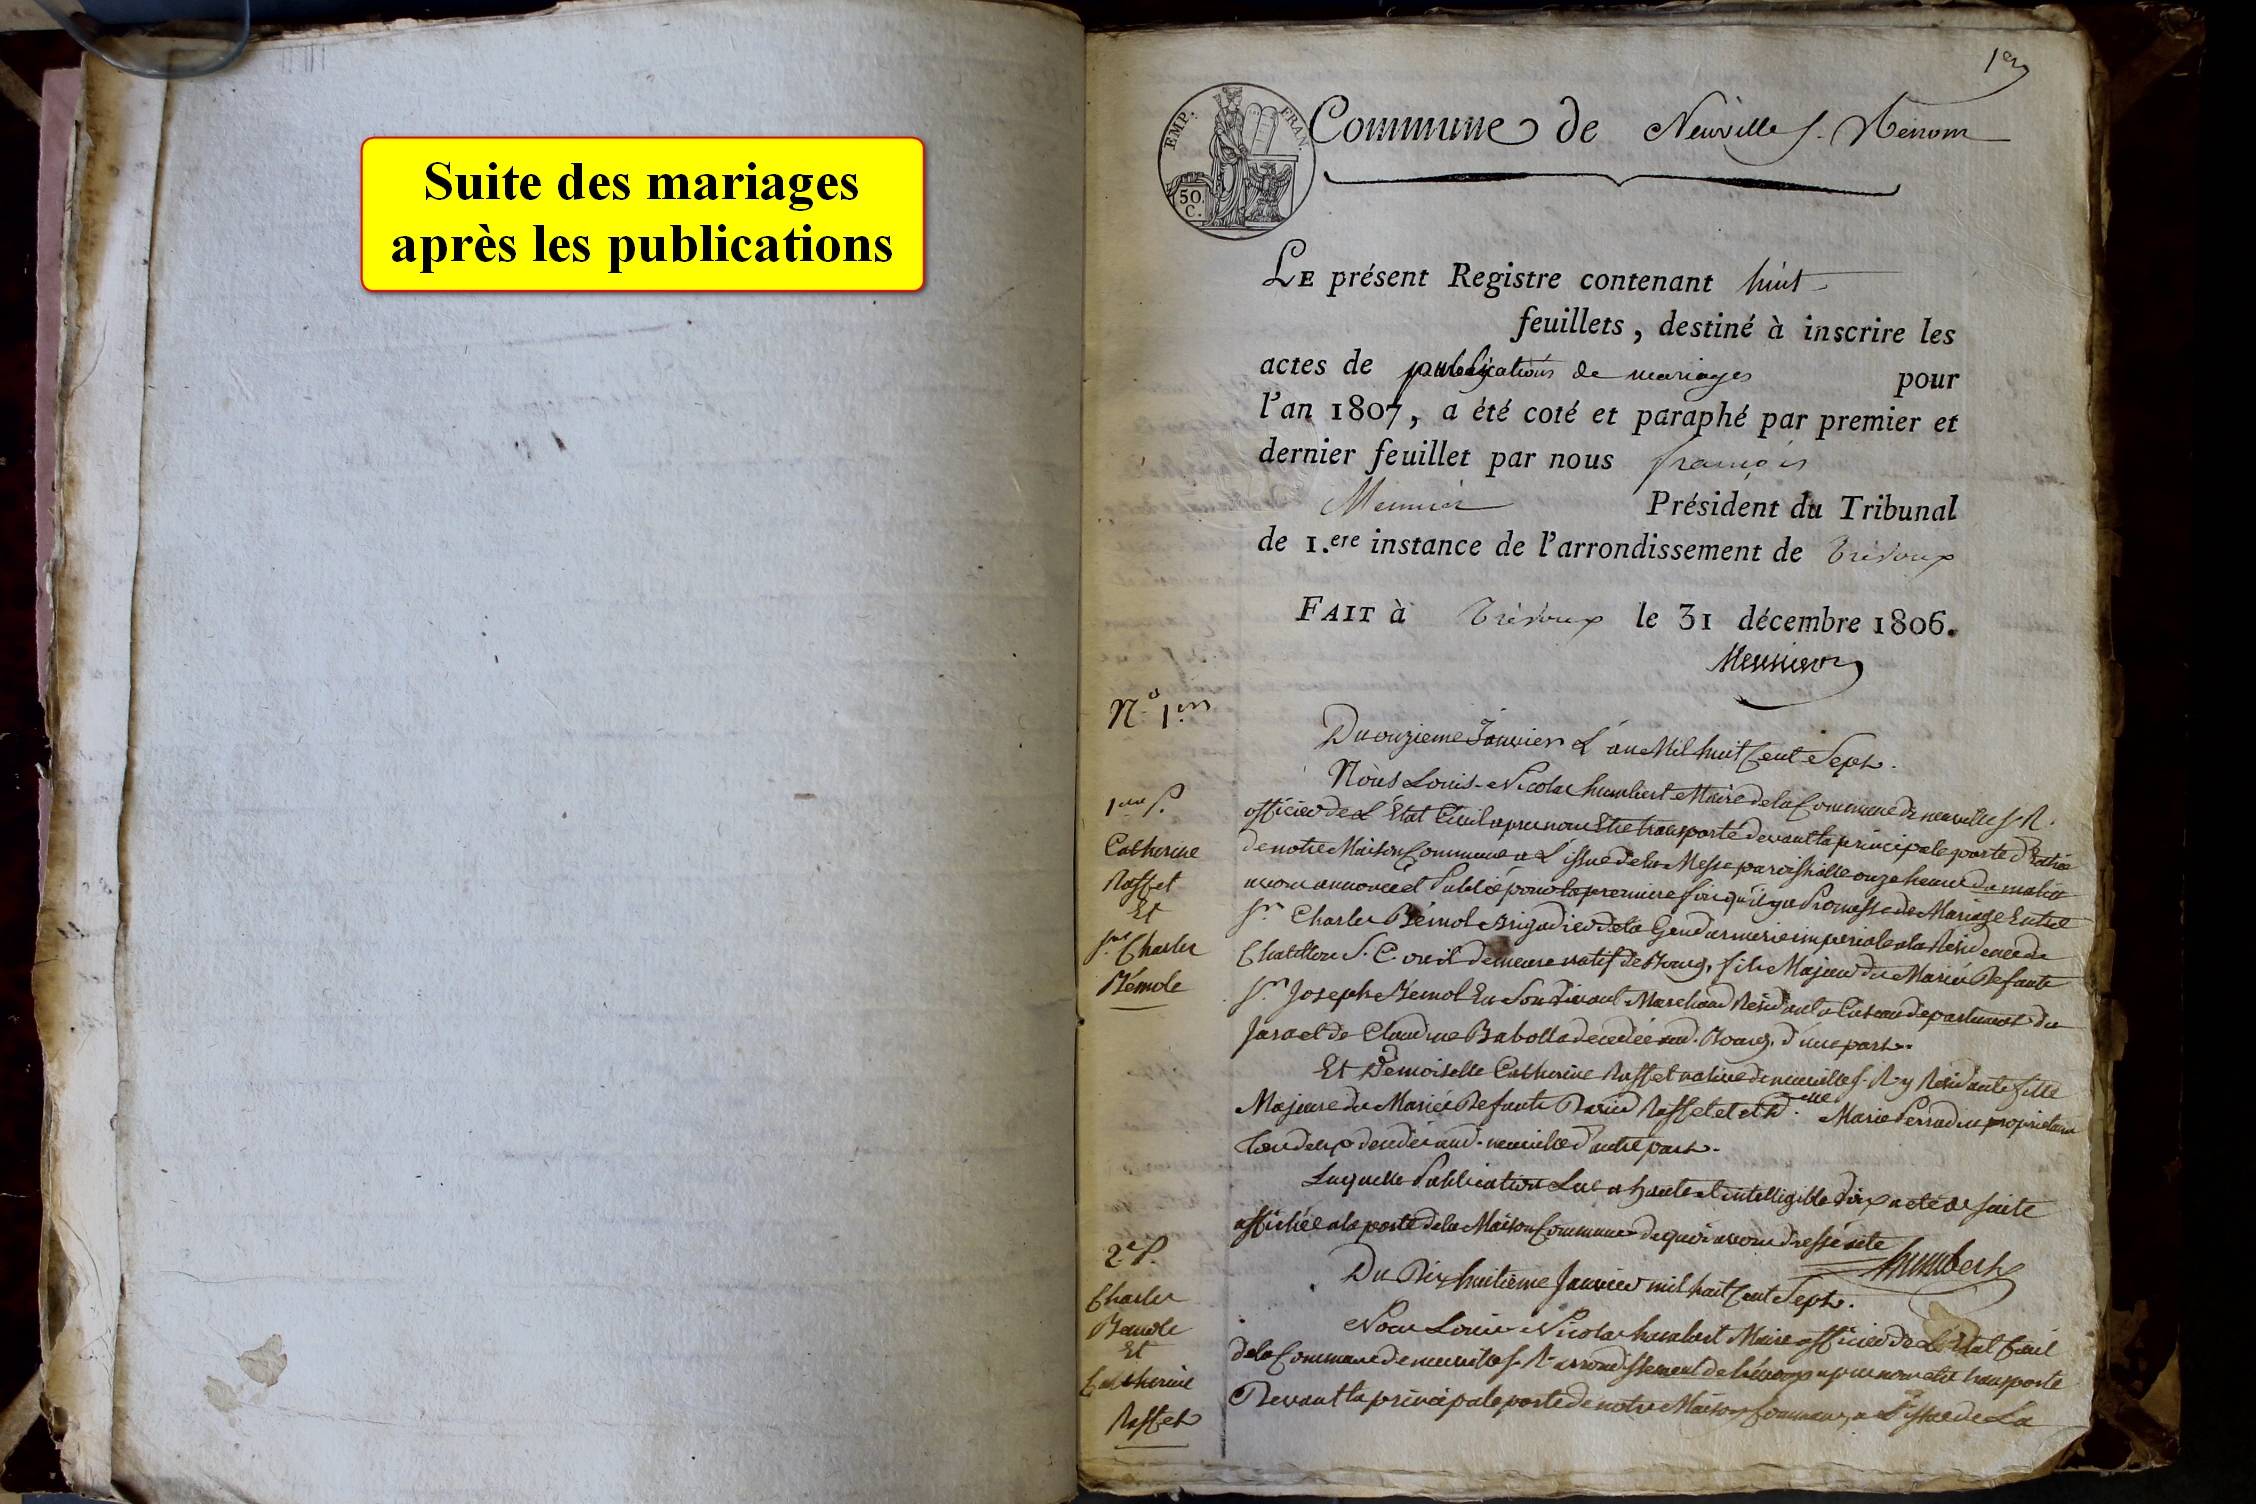 Suite des mariages
après les publications
1er
EMP. FRAN.
50.
C.
Commune de Neuville s. Rénom
LE présent Registre contenant huit
feuillets, destiné à inscrire les
actes de publications de mariages pour
l'an 1807, a été coté et paraphé par premier et
dernier feuillet par nous françois
Meunier Président du Tribunal
de 1.ere instance de l'arrondissement de Trévoux
FAIT à Trévoux le 31 décembre 1806.
Meunier
N.º 1er
Du onzieme Janvier L'an Mil huit Cent Sept.
1ere P.
Catherine
Raffet
Et
Sr. Charles
Bémole
Nous Louis-Nicolas humbert Maire de la Commune de neuville s. R.
officier de L'État Civil apres nous Etre transporté devant la principale porte d'Entrée
de notre Maison Commune a L'issue de la Messe paroissialle onze heures du matin
avons annoncé et Publié pour la premiere fois qu'il y a Promesse de Mariage Entre
Sr. Charles Bémol Brigadier de la Gendarmerie imperiale a la Résidence de
Chatillon S. C. ou il demeure natif de Bourg, fils Majeur du Marié Defunts
Sr. Joseph Bémol En Son Vivant Marchand Résidant a Cuseau departement du
Jura et de Claudine Babolla decedée aud. Bourg, d'une part.
Et Demoiselle Catherine Raffet native de neuville s. R. y Résidante fille
Majeure du Mariée Defunts Raffet et et D.lle Marie Perradin proprietaires
tous deux decedés aud. neuville d'autre part.
Laquelle Publication Lue a haute et intelligible Voix a eté de suite
affichée a la porte de la Maison Commune de quoi avons dressé acte
humbert
2e P.
Charles
Bemole
Et
Catherine
Raffet
Du Dix huitieme Janvier mil huit Cent Sept.
Nous Louis-Nicolas humbert Maire officier de L'État Civil
de la Commune de neuville s. R. arrondissement de trévoux apres nous etre transporté
Devant la principale porte de notre Maison Commune, a L'issue de La